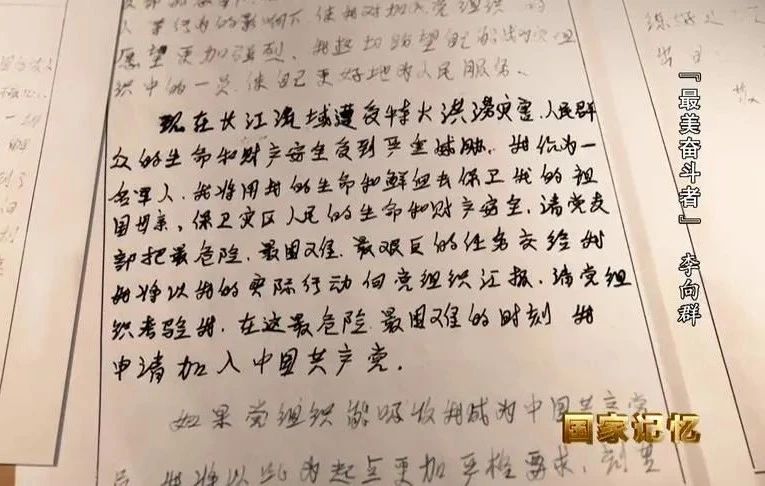 愿望更加强烈，我迫切盼望自己能成为党组
织中的一员，使自己更好地为人民服务。
现在长江流域遭受特大洪涝灾害，人民群
众的生命和财产安全受到严重威胁，我作为一
名军人，我将用我的生命和鲜血去保卫我的祖
国母亲，保卫灾区人民的生命和财产安全，请党支
部把最危险、最困难、最艰巨的任务交给我
我将以我的实际行动向党组织汇报，请党组
织考验我，在这最危险、最困难的时刻 我
申请加入中国共产党。
如果党组织能吸收我成为中国共产党
员 我将以此为起点更加严格要求，
『最美奋斗者』 李向群
国家记忆